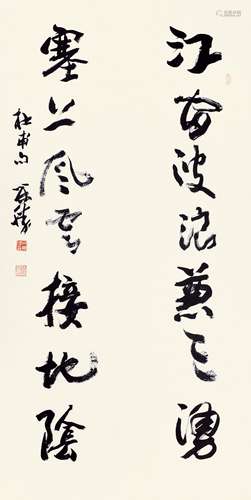 江間波浪兼天湧
塞上風雲接地陰
杜甫句